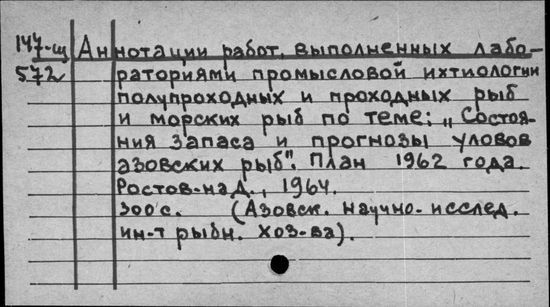 147-щ Аннотации работ, выполненных лабо-
572 раториями промысловой ихтиологии
полупроходных и проходных рыб
и морских рыб по теме: „Состоя-
ния запаса и прогнозы уловов
азовских рыб". План 1962 года.
Ростов-на Д., 1964.
300с. (Азовск. научно-исслед.
ин-т рыбн. хоз-ва).